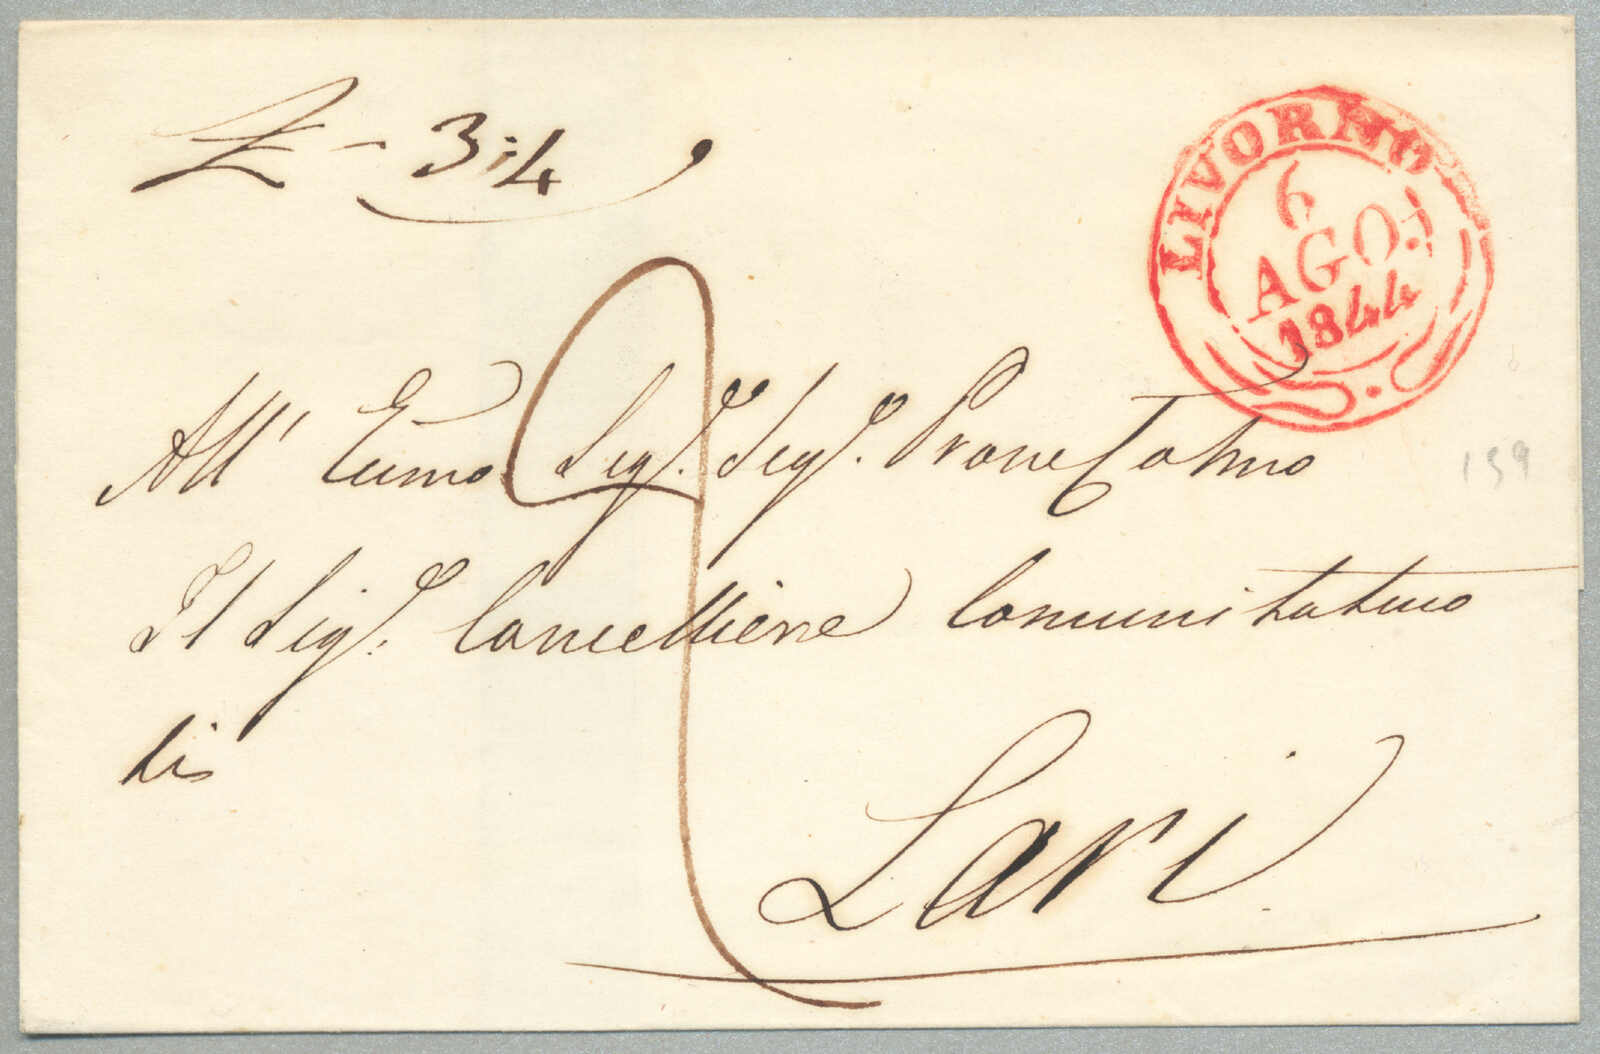 £ - 3:4
LIVORNO
6
AGO:
1844
All' Eccmo Sigr. Sigr. Prone Colmo
Il Sigr. Cancelliere Comunitativo
di
Lari
2
159